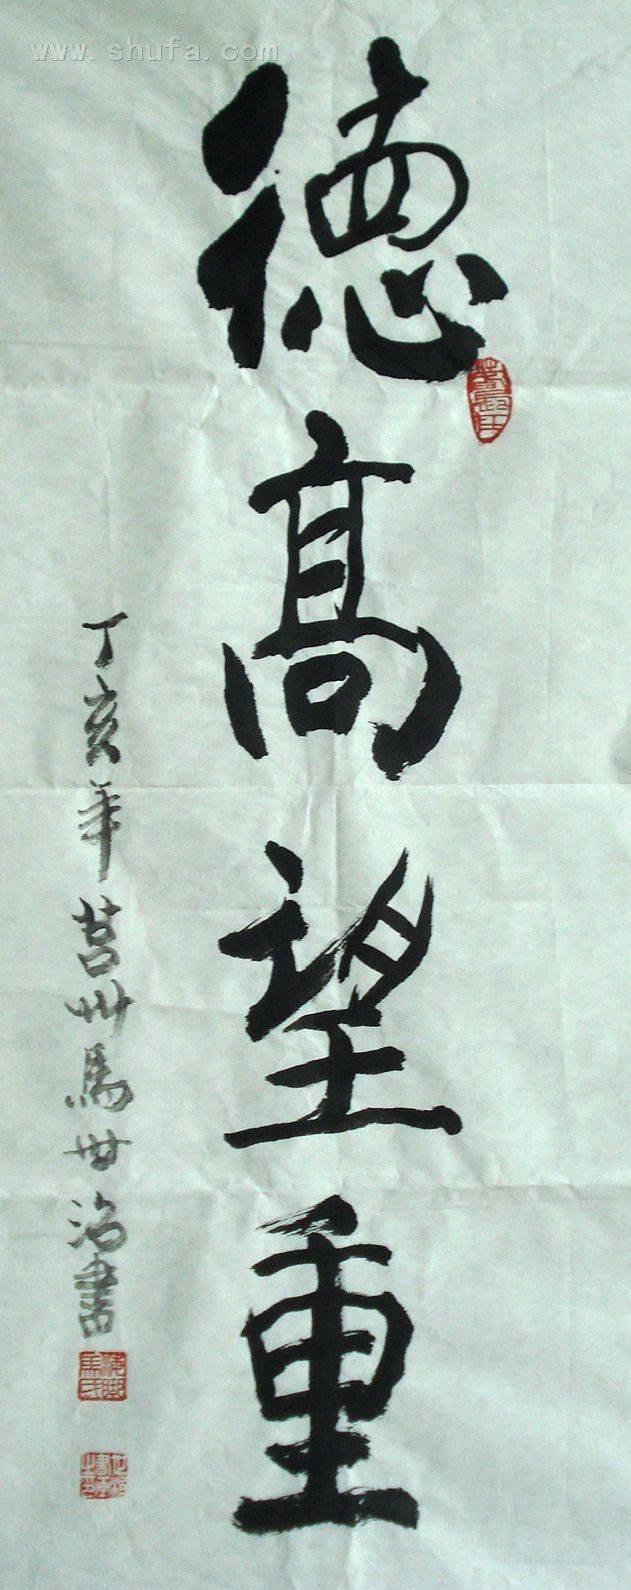 www.shufa.com
德高望重
丁亥年莒州馬世海書